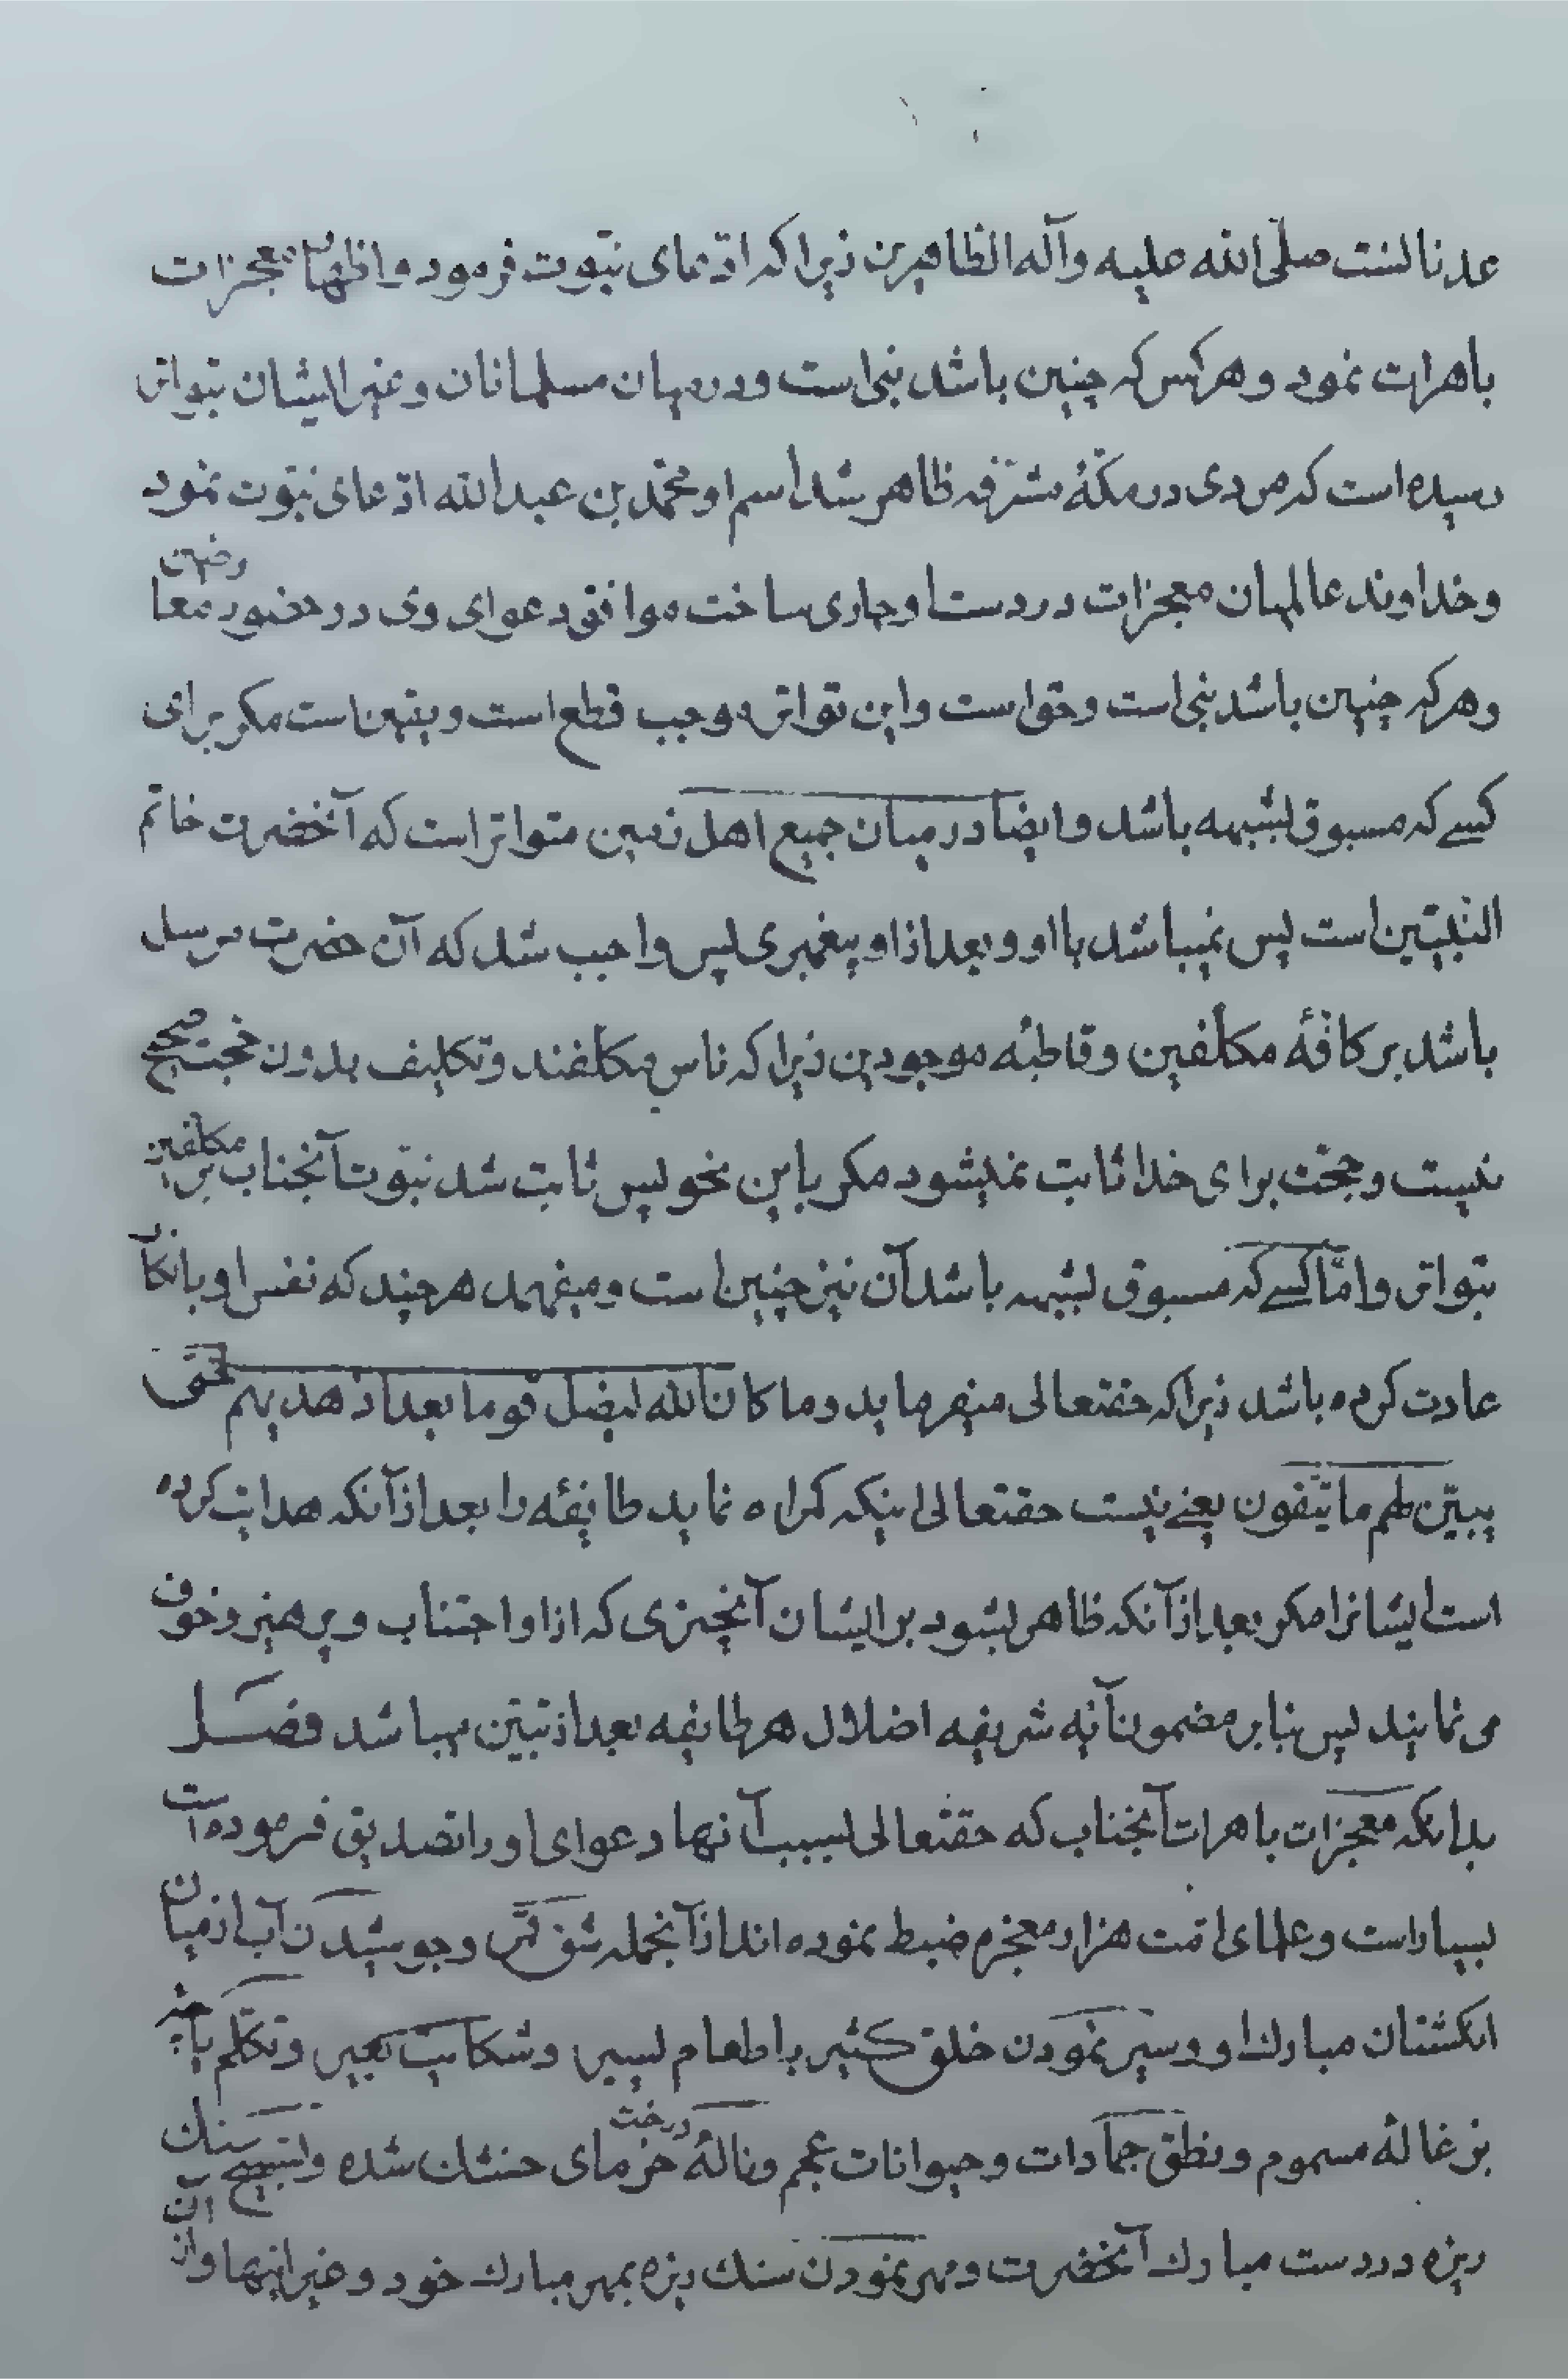 عدنانست صلّی الله علیه وآله الطاهرین زیرا که ادّعای نبّوت فرمود واظهار معجزات
باهرات نمود وهرکس که چنین باشد نبی است ودرمیان مسلمانان وغیر ایشان بتواتر
رسیده است که مردی در مکّهٔ مشرّفه ظاهر شد اسم او محمّد بن عبدالله ادّعای نبوّت نمود
وخداوند عالمیان معجزات در دست او جاری ساخت موافق دعوای وی در حضور معارضین
وهرکه چنین باشد نبی است وحق است واین تواتر موجب قطع است ویقین است مکر برای
کسے که مسبوق بشبهه باشد وایضا در میان جمیع اهل زمین متواتر است که آنحضرت خاتم
النّبیّین است پس نمیباشد با او وبعد از او پیغمبری پس واجب شد که آن حضرت مرسل
باشد بر کافّهٔ مکلّفین وقاطبهٔ موجودین زیرا که ناس مکلّفند وتکلیف بدون حجت صحیح
نیست وحجّت برای خدا ثابت نمیشود مکر باین نحو پس ثابت شد نبوّت آنجناب بر مکلّفین
بتواتر وامّا کسے که مسبوق بشبهه باشد آن نیز چنین است ومیفهمد هرچند که نفس او بانکار
عادت کرده باشد زیرا که حقتعالی میفرماید وما کان الله لیضل قوما بعد اذ هدیهم حتّی
یبیّن لهم ما یتّقون یعنے نیست حقتعالی اینکه کمراه نماید طایفهٔ را بعد از آنکه هدایت کرده
است ایشانرا مکر بعد از آنکه ظاهر بشود بر ایشان آنچیزی که از او اجتناب وپرهیز وخوف
می نمایند پس بنابر مضمون آیه شریفه اضلال هر طایفه بعد از تبیّن میباشد فصل
بدانکه معجزات باهرات آنجناب که حقتعالی بسبب آنها دعوای او را تصدیق فرموده است
بسیار است وعلمای امّت هزار معجزه ضبط نموده اند از آنجمله شق قمر وجوشیدن آب از میان
انکشتان مبارك او وسیر نمودن خلق کثیر با طعام یسیر وشکایت بعیر وتکلّم با
بزغالهٔ مسموم ونطق جمادات وحیوانات عجم ونالهٔ درخت خرمای خشک شده وتسبیح سنك
ریزه در دست مبارك آنحضرت ومهر نمودن سنك ریزه بمهر مبارك خود وغیر اینها واز آن